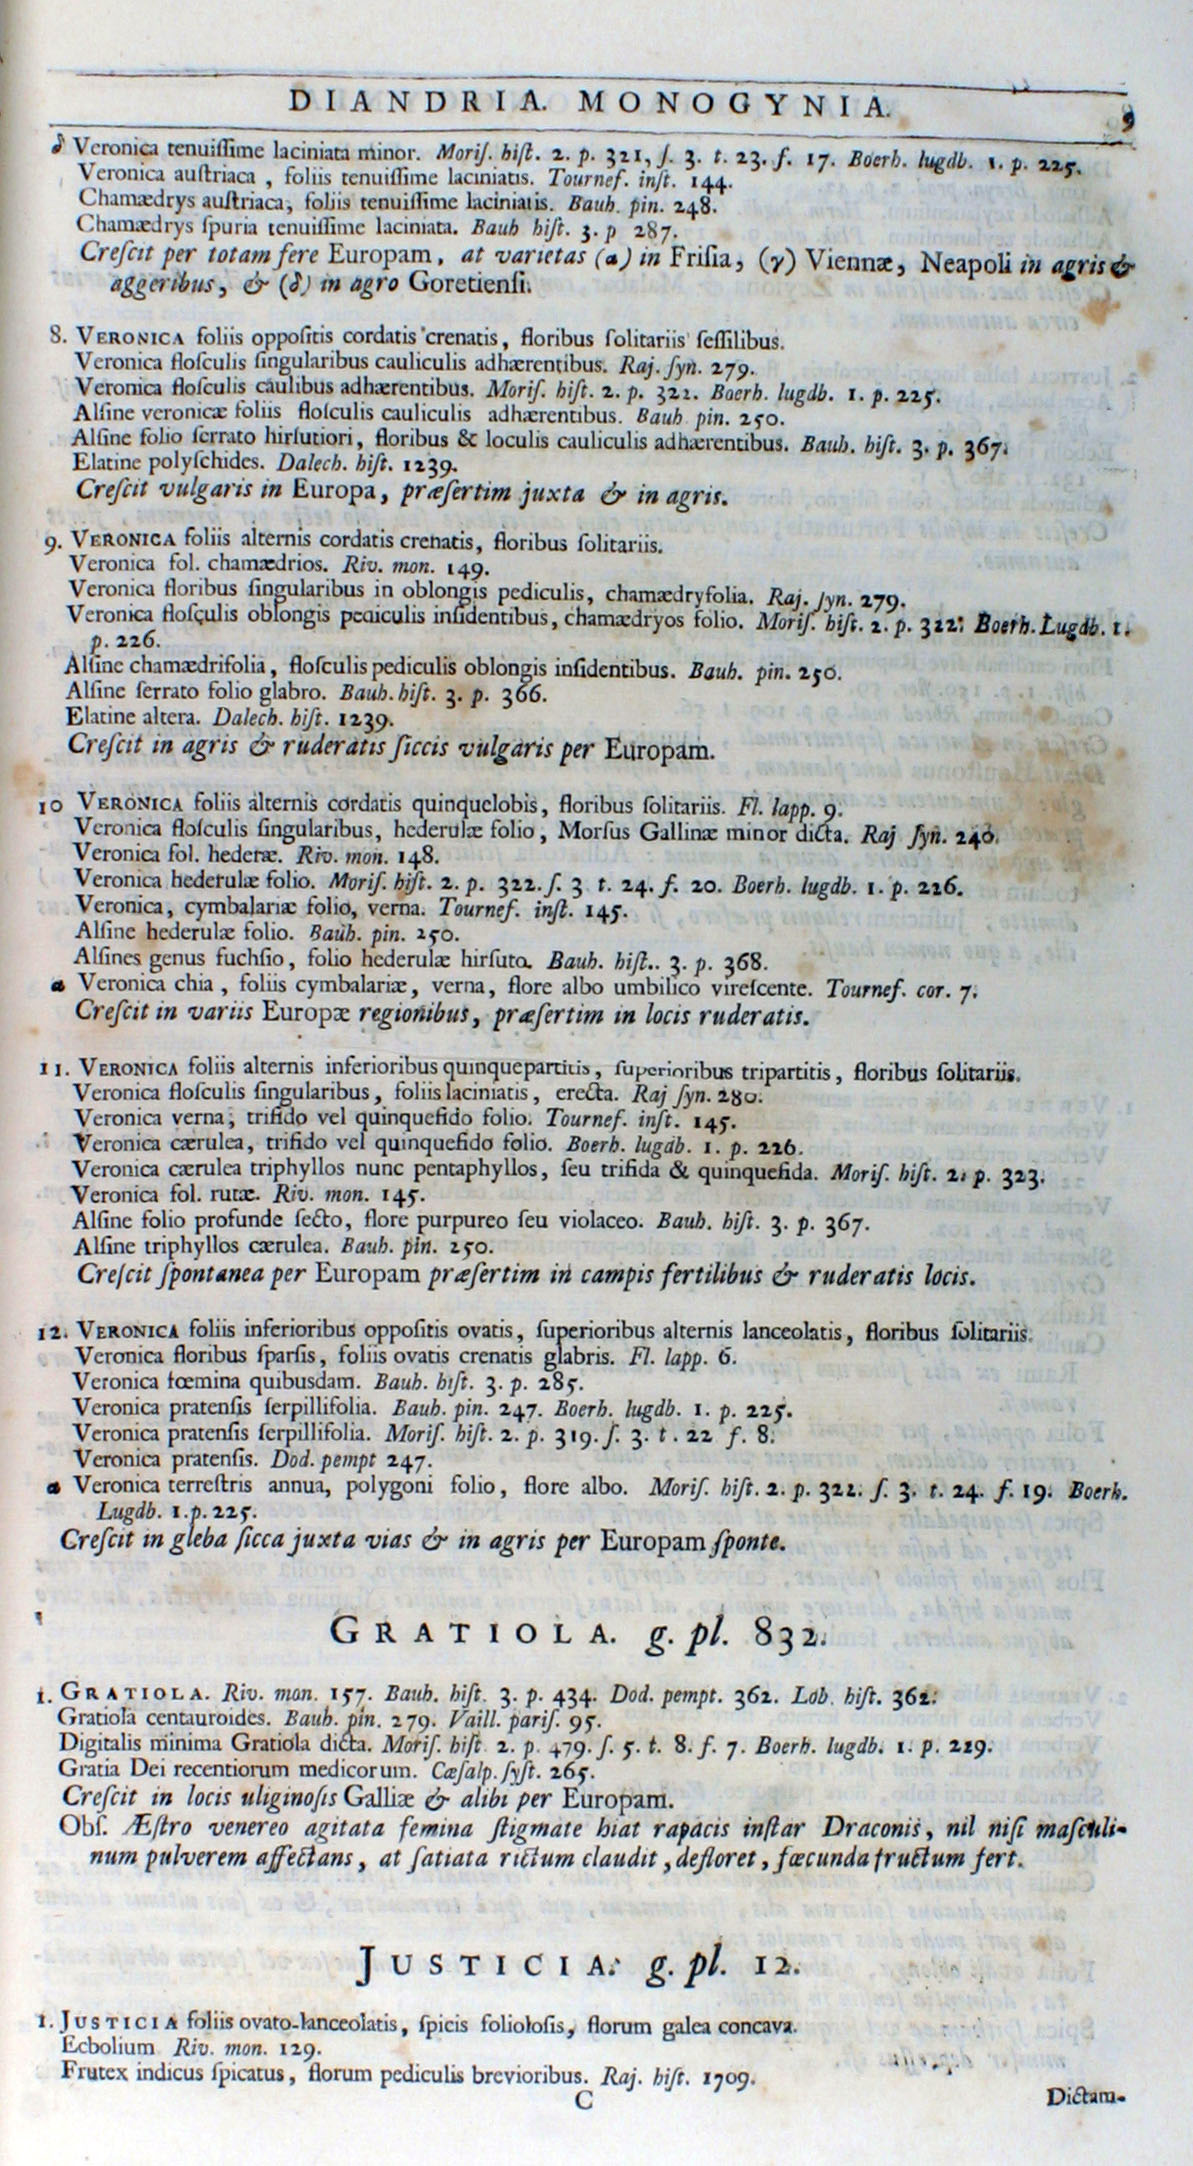 DIANDRIA. MONOGYNIA. 9
δ Veronica tenuiſſime laciniata minor. Moriſ. hiſt. 2. p. 321, ſ. 3. t. 23. f. 17. Boerh. lugdb. 1. p. 225.
Veronica auſtriaca, foliis tenuiſſime laciniatis. Tournef. inſt. 144.
Chamædrys auſtriaca, foliis tenuiſſime laciniatis. Bauh. pin. 248.
Chamædrys ſpuria tenuiſſime laciniata. Bauh hiſt. 3. p 287.
Creſcit per totam fere Europam, at varietas (α) in Friſia, (γ) Viennæ, Neapoli in agris &
aggeribus, & (δ) in agro Goretienſi.
8. VERONICA foliis oppoſitis cordatis crenatis, floribus ſolitariis ſeſſilibus.
Veronica floſculis ſingularibus cauliculis adhærentibus. Raj. ſyn. 279.
Veronica floſculis caulibus adhærentibus. Moriſ. hiſt. 2. p. 322. Boerh. lugdb. 1. p. 225.
Alſine veronicæ foliis floſculis cauliculis adhærentibus. Bauh pin. 250.
Alſine folio ſerrato hirſutiori, floribus & loculis cauliculis adhærentibus. Bauh. hiſt. 3. p. 367.
Elatine polyſchides. Dalech. hiſt. 1239.
Creſcit vulgaris in Europa, præſertim juxta & in agris.
9. VERONICA foliis alternis cordatis crenatis, floribus ſolitariis.
Veronica fol. chamædrios. Riv. mon. 149.
Veronica floribus ſingularibus in oblongis pediculis, chamædryfolia. Raj. ſyn. 279.
Veronica floſculis oblongis pediculis inſidentibus, chamædryos folio. Moriſ. hiſt. 2. p. 322. Boerh. Lugdb. 1.
p. 226.
Alſine chamædrifolia, floſculis pediculis oblongis inſidentibus. Bauh. pin. 250.
Alſine ſerrato folio glabro. Bauh. hiſt. 3. p. 366.
Elatine altera. Dalech. hiſt. 1239.
Creſcit in agris & ruderatis ſiccis vulgaris per Europam.
10 VERONICA foliis alternis cordatis quinquelobis, floribus ſolitariis. Fl. lapp. 9.
Veronica floſculis ſingularibus, hederulæ folio, Morſus Gallinæ minor dicta. Raj ſyn. 240.
Veronica fol. hederæ. Riv. mon. 148.
Veronica hederulæ folio. Moriſ. hiſt. 2. p. 322. ſ. 3 t. 24. f. 20. Boerh. lugdb. 1. p. 226.
Veronica, cymbalariæ folio, verna. Tournef. inſt. 145.
Alſine hederulæ folio. Bauh. pin. 250.
Alſines genus fuchſio, folio hederulæ hirſuto. Bauh. hiſt.. 3. p. 368.
α Veronica chia, foliis cymbalariæ, verna, flore albo umbilico vireſcente. Tournef. cor. 7.
Creſcit in variis Europæ regionibus, præſertim in locis ruderatis.
11. VERONICA foliis alternis inferioribus quinquepartitis, ſuperioribus tripartitis, floribus ſolitariis.
Veronica floſculis ſingularibus, foliis laciniatis, erecta. Raj ſyn. 280.
Veronica verna, trifido vel quinquefido folio. Tournef. inſt. 145.
Veronica cærulea, trifido vel quinquefido folio. Boerh. lugdb. 1. p. 226.
Veronica cærulea triphyllos nunc pentaphyllos, ſeu trifida & quinquefida. Moriſ. hiſt. 2. p. 323.
Veronica fol. rutæ. Riv. mon. 145.
Alſine folio profunde ſecto, flore purpureo ſeu violaceo. Bauh. hiſt. 3. p. 367.
Alſine triphyllos cærulea. Bauh. pin. 250.
Creſcit ſpontanea per Europam præſertim in campis fertilibus & ruderatis locis.
12. VERONICA foliis inferioribus oppoſitis ovatis, ſuperioribus alternis lanceolatis, floribus ſolitariis.
Veronica floribus ſparſis, foliis ovatis crenatis glabris. Fl. lapp. 6.
Veronica fœmina quibusdam. Bauh. hiſt. 3. p. 285.
Veronica pratenſis ſerpillifolia. Bauh. pin. 247. Boerh. lugdb. 1. p. 225.
Veronica pratenſis ſerpillifolia. Moriſ. hiſt. 2. p. 319. ſ. 3. t. 22 f. 8.
Veronica pratenſis. Dod. pempt 247.
α Veronica terreſtris annua, polygoni folio, flore albo. Moriſ. hiſt. 2. p. 322. ſ. 3. t. 24. f. 19. Boerh.
Lugdb. 1. p. 225.
Creſcit in gleba ſicca juxta vias & in agris per Europam ſponte.
GRATIOLA. g. pl. 832.
1. GRATIOLA. Riv. mon. 157. Bauh. hiſt. 3. p. 434. Dod. pempt. 362. Lob. hiſt. 362.
Gratiola centauroides. Bauh. pin. 279. Vaill. pariſ. 95.
Digitalis minima Gratiola dicta. Moriſ. hiſt. 2. p. 479. ſ. 5. t. 8. f. 7. Boerh. lugdb. 1. p. 229.
Gratia Dei recentiorum medicorum. Cæſalp. ſyſt. 265.
Creſcit in locis uliginoſis Galliæ & alibi per Europam.
Obſ. Æſtro venereo agitata femina ſtigmate hiat rapacis inſtar Draconis, nil niſi maſculi-
num pulverem affectans, at ſatiata rictum claudit, defloret, fœcunda fructum fert.
JUSTICIA. g. pl. 12.
1. JUSTICIA foliis ovato-lanceolatis, ſpicis folioloſis, florum galea concava.
Ecbolium Riv. mon. 129.
Frutex indicus ſpicatus, florum pediculis brevioribus. Raj. hiſt. 1709.
C Dictam-